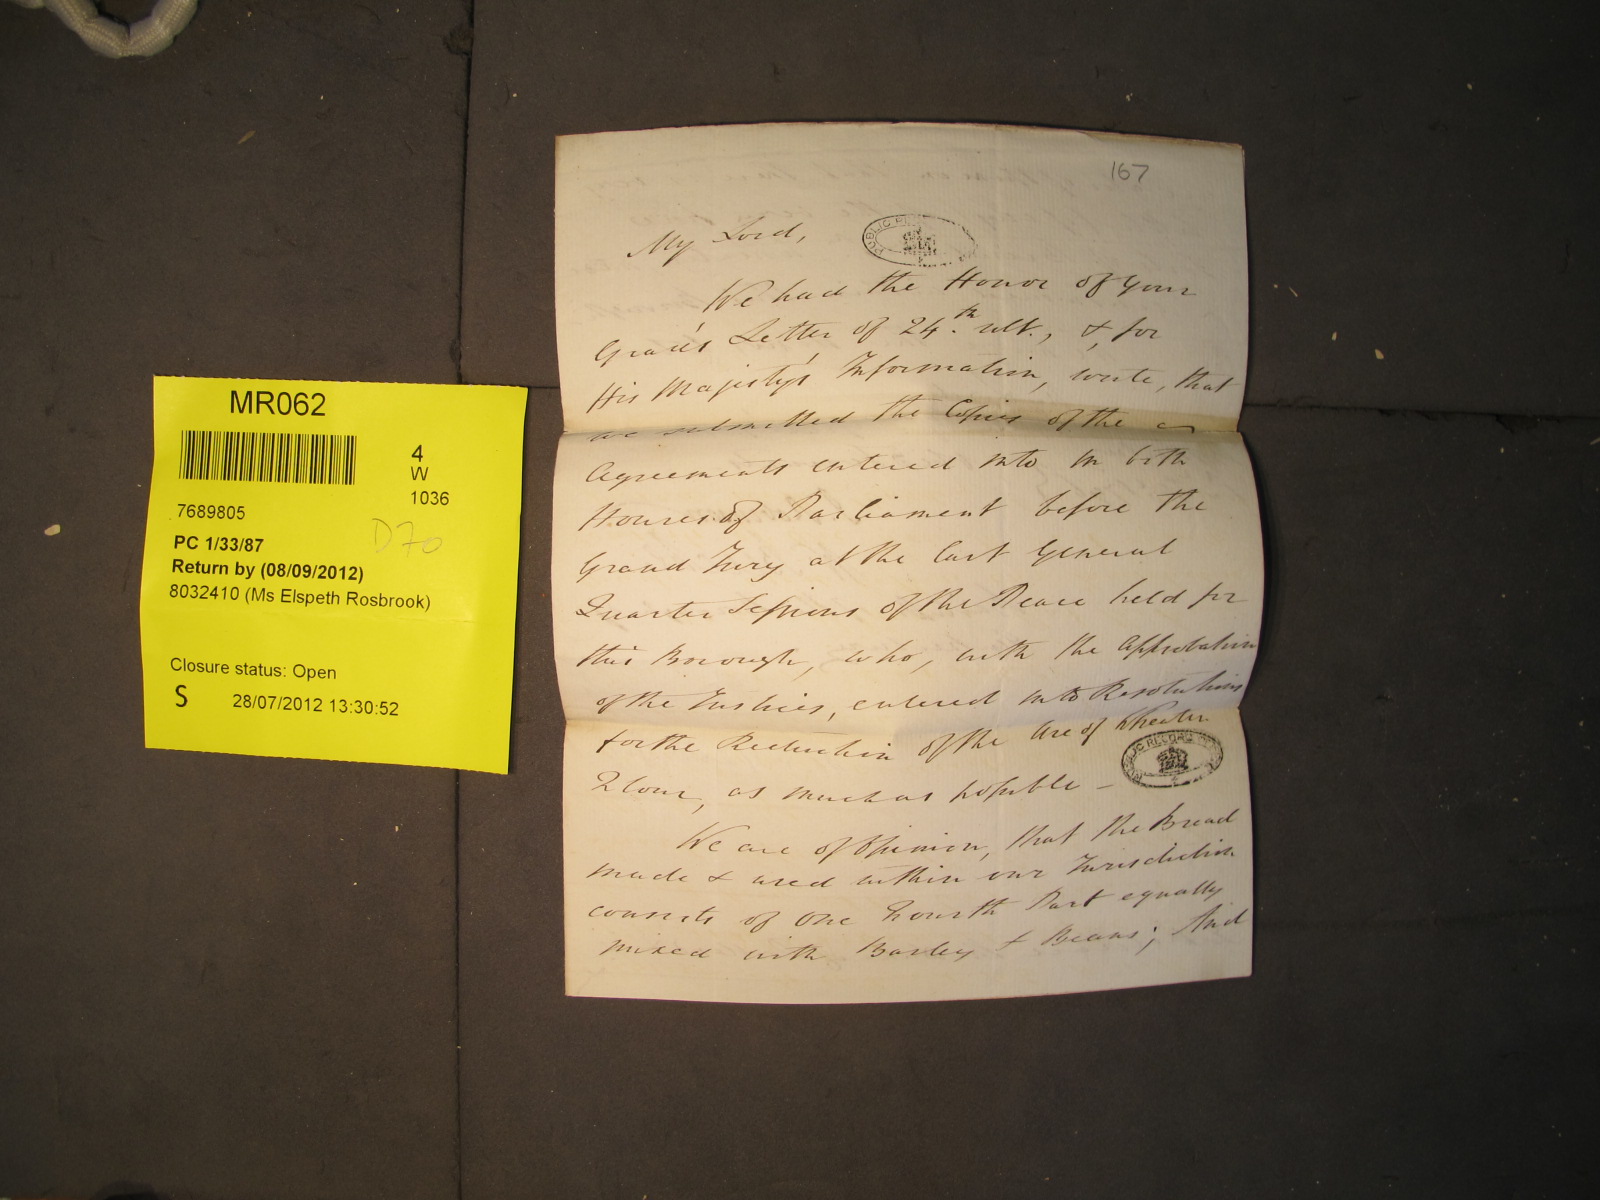 MR062
4
W
1036
7689805
D70
PC 1/33/87
Return by (08/09/2012)
8032410 (Ms Elspeth Rosbrook)
Closure status: Open
S 28/07/2012 13:30:52
167
My Lord,
PUBLIC RE
We had the Honor of Your
Grace's Letter of 24.th ult., &, for
His Majesty's Information, write, that
we submitted the Copies of the
Agreements entered into in both
Houses of Parliament before the
Grand Jury at the last General
Quarter Sessions of the Peace held for
this Borough, who, with the Approbation
of the Justices, entered into Resolutions
for the Reduction of the Use of Wheaten
Flour, as much as possible –
PUBLIC RECORD
We are of Opinion, that the Bread
made & used within our Jurisdiction
consists of One Fourth Part equally
mixed with Barley & Beans; And